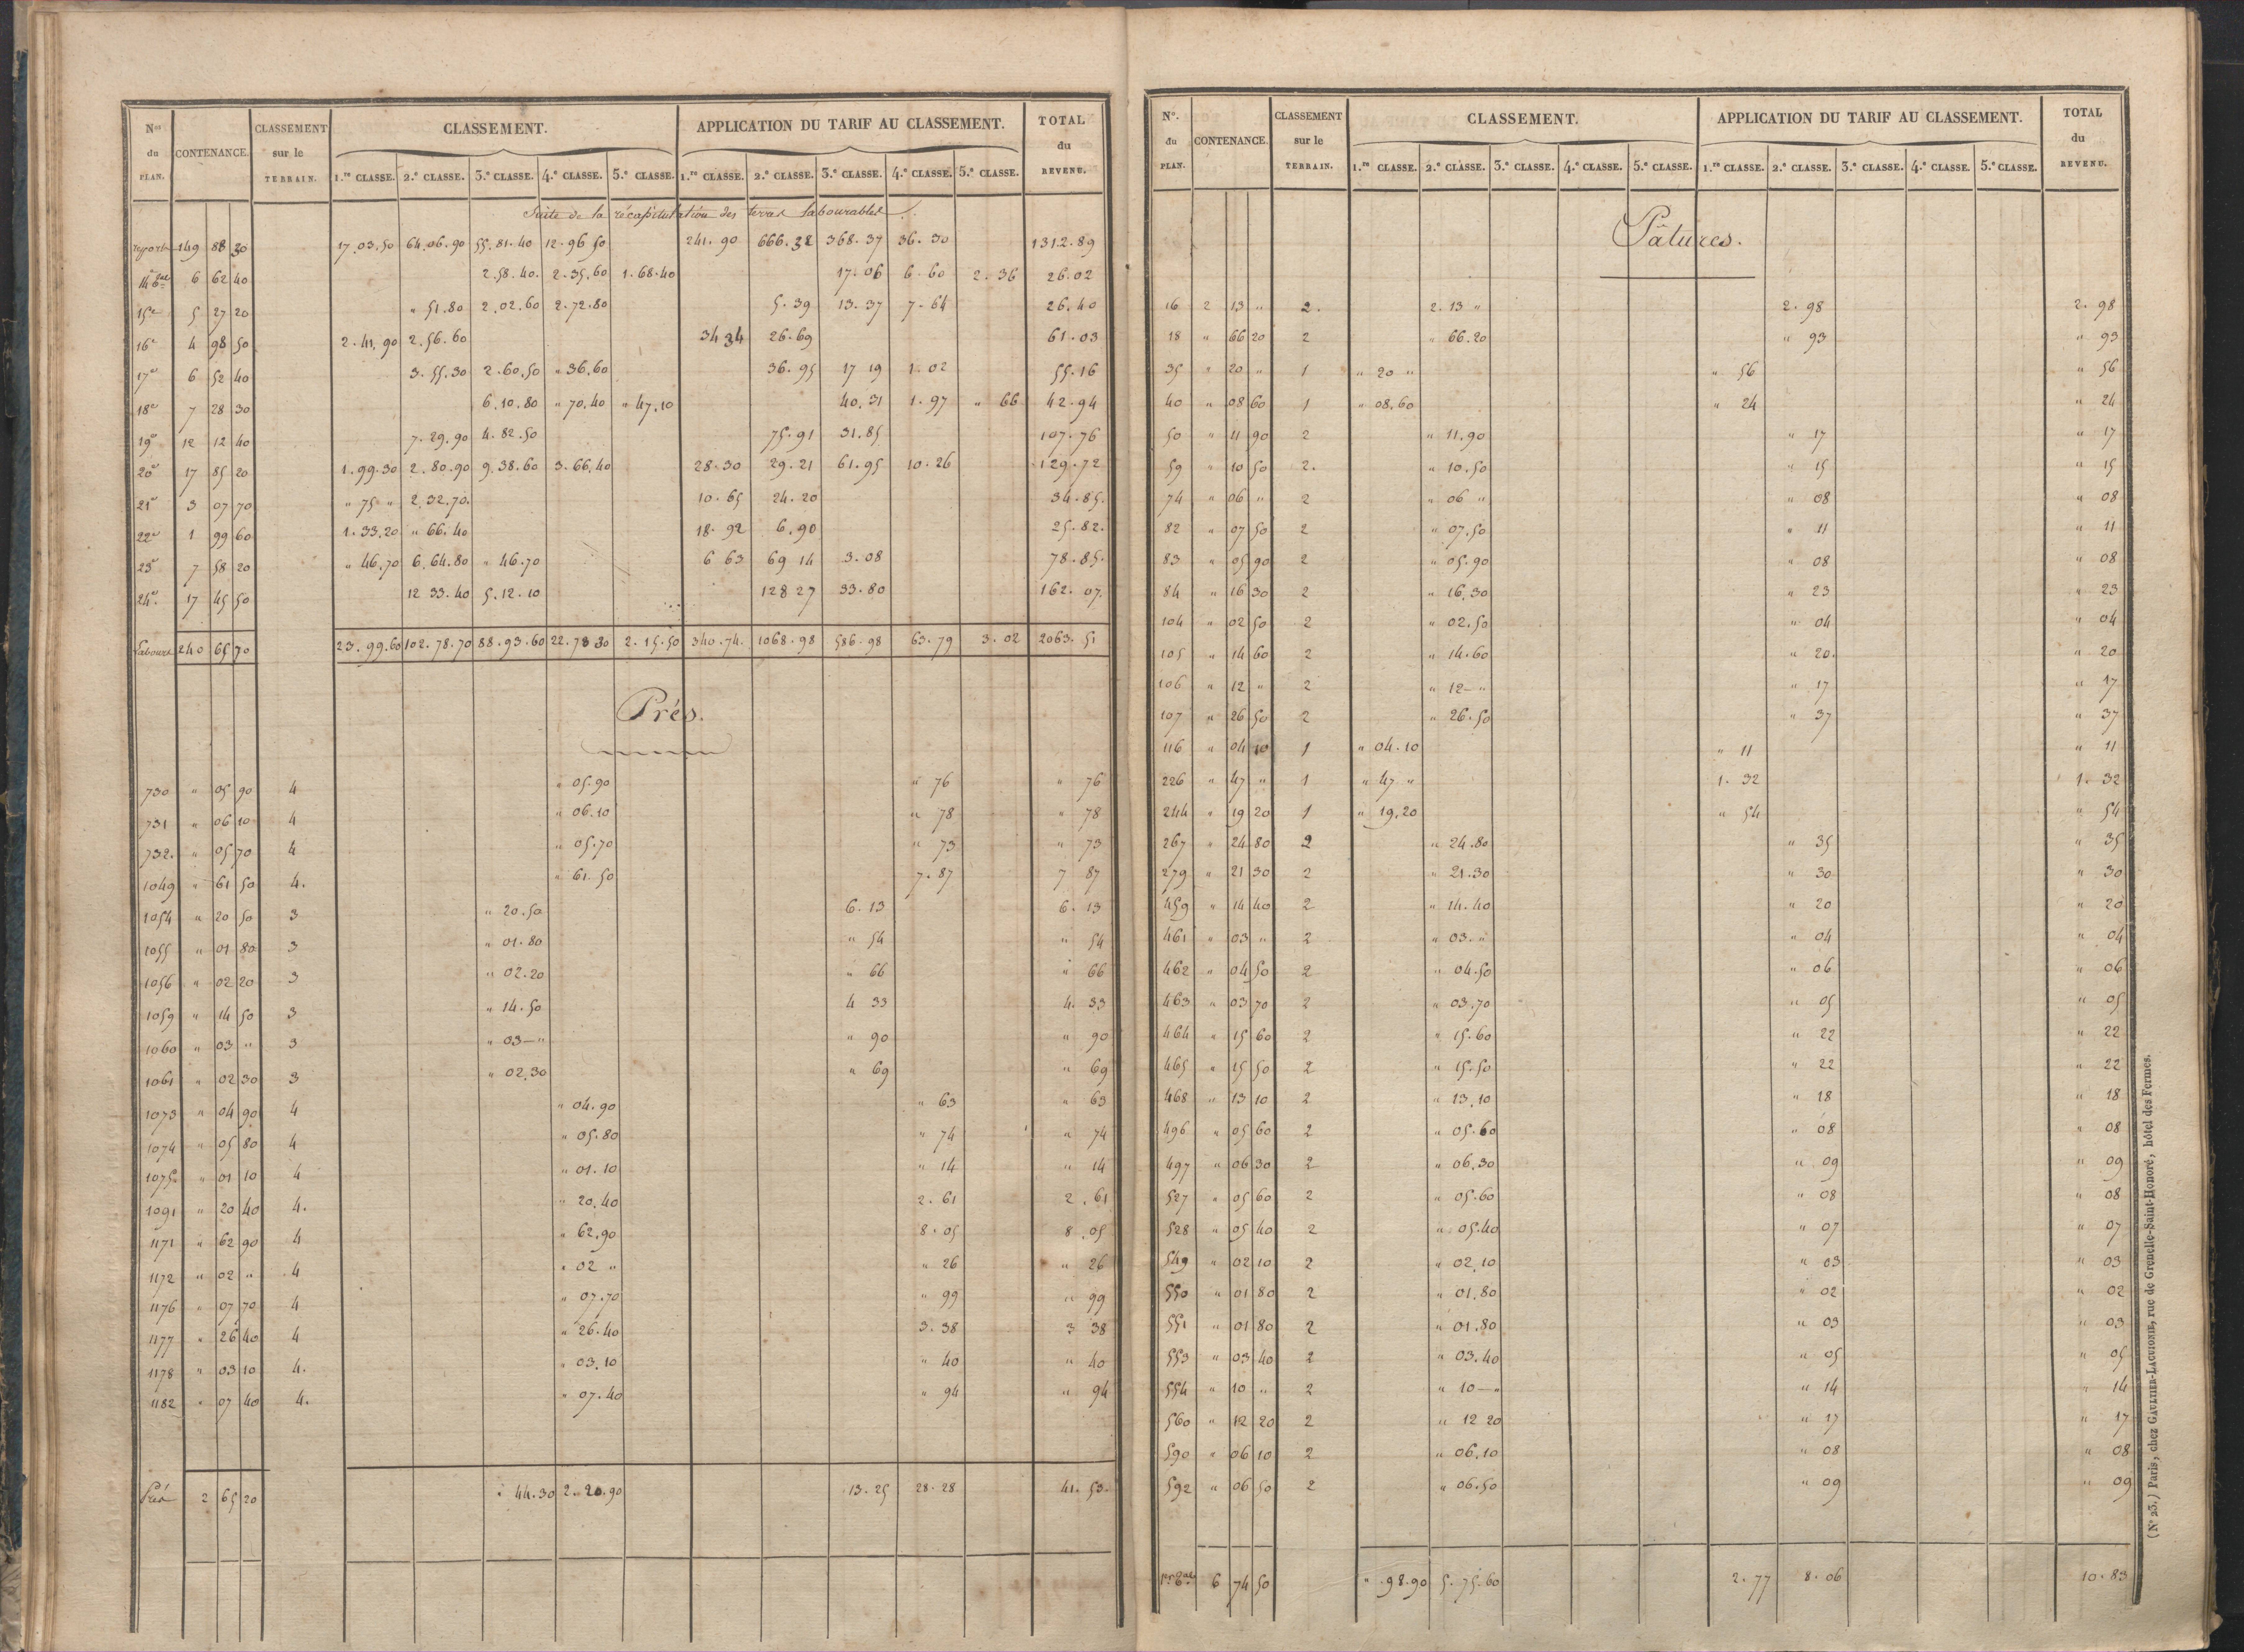 Nos du PLAN. CONTENANCE. CLASSEMENT sur le TERRAIN. CLASSEMENT. APPLICATION DU TARIF AU CLASSEMENT. TOTAL du REVENU.
1.re CLASSE. 2.e CLASSE. 3.e CLASSE. 4.e CLASSE. 5.e CLASSE. 1.re CLASSE. 2.e CLASSE. 3.e CLASSE. 4.e CLASSE. 5.e CLASSE.
Suite de la récapitulation des terres labourables.
report 149 88 30 17.03.50 64.06.90 55.81.40 12.96 50 241.90 666.32 368.37 36.30 1312.89
14e 6 62 40 2.58.40. 2.35.60 1.68.40 17.06 6.60 2.36 26.02
15e 5 27 20 " 51.80 2.02.60 2.72.80 5.39 13.37 7.64 26.40
16e 4 98 50 2.41.90 2.56.60 34 34 26.69 61.03
17e 6 52 40 3.55.30 2.60.50 " 36.60 36.95 17 19 1.02 55.16
18e 7 28 30 6.10.80 " 70.40 " 47.10 40.31 1.97 " 66 42.94
19e 12 12 40 7.29.90 4.82.50 75.91 31.85 107.76
20e 17 85 20 1.99.30 2.80.90 9.38.60 3.66.40 28.30 29.21 61.95 10.26 129.72
21e 3 07 70 " 75 " 2.32.70. 10.65 24.20 34.85.
22e 1 99 60 1.33.20 " 66.40 18.92 6.90 25.82.
23e 7 58 20 " 46.70 6.64.80 " 46.70 6 63 69 14 3.08 78.85.
24e. 17 45 50 12 33.40 5.12.10 128 27 33.80 162.07.
Labours 240 65 70 23.99.60 102.78.70 88.93.60 22.78 30 2.15.50 340.74. 1068.98 586.98 63.79 3.02 2063.51
Prés.
730 " 05 90 4 " 05.90 " 76 " 76
731 " 06 10 4 " 06.10 " 78 " 78
732. " 05 70 4 " 05.70 " 73 " 73
1049 " 61 50 4. " 61.50 7.87 7 87
1054 " 20 50 3 " 20.50 6.13 6.13
1055 " 01 80 3 " 01.80 " 54 " 54
1056 " 02 20 3 " 02.20 " 66 " 66
1059 " 14 50 3 " 14.50 4 33 4.33
1060 " 03 " 3 " 03—" " 90 " 90
1061 " 02 30 3 " 02.30 " 69 " 69
1073 " 04 90 4 " 04.90 " 63 " 63
1074 " 05 80 4 " 05.80 " 74 " 74
1075. " 01 10 4 " 01.10 " 14 " 14
1091 " 20 40 4. " 20.40 2.61 2.61
1171 " 62 90 4 " 62.90 8.05 8.05
1172 " 02 " 4 " 02 " " 26 " 26
1176 " 07 70 4 " 07.70 " 99 " 99
1177 " 26 40 4 " 26.40 3.38 3 38
1178 " 03 10 4. " 03.10 " 40 " 40
1182 " 07 40 4. " 07.40 " 94 " 94
Prés 2 65 20 " 44.30 2.20.90 13.25 28.28 41.53.
No. du PLAN. CONTENANCE. CLASSEMENT sur le TERRAIN. CLASSEMENT. APPLICATION DU TARIF AU CLASSEMENT. TOTAL du REVENU.
1.re CLASSE. 2.e CLASSE. 3.e CLASSE. 4.e CLASSE. 5.e CLASSE. 1.re CLASSE. 2.e CLASSE. 3.e CLASSE. 4.e CLASSE. 5.e CLASSE.
Pâtures.
16 2 13 " 2. 2.13 " 2.98 2.98
18 " 66 20 2 " 66.20 " 93 " 93
35 " 20 " 1 " 20 " " 56 " 56
40 " 08 60 1 " 08.60 " 24 " 24
50 " 11 90 2 " 11.90 " 17 " 17
59 " 10 50 2. " 10.50 " 15 " 15
74 " 06 " 2 " 06 " " 08 " 08
82 " 07 50 2 " 07.50 " 11 " 11
83 " 05 90 2 " 05.90 " 08 " 08
84 " 16 30 2 " 16.30 " 23 " 23
104 " 02 50 2 " 02.50 " 04 " 04
105 " 14 60 2 " 14.60 " 20. " 20
106 " 12 " 2 " 12—" " 17 " 17
107 " 26 50 2 " 26.50 " 37 " 37
116 " 04 10 1 " 04.10 " 11 " 11
226 " 47 " 1 " 47 " 1.32 1.32
244 " 19 20 1 " 19.20 " 54 " 54
267 " 24 80 2 " 24.80 " 35 " 35
279 " 21 30 2 " 21.30 " 30 " 30
459 " 14 40 2 " 14.40 " 20 " 20
461 " 03 " 2 " 03." " 04 " 04
462 " 04 50 2 " 04.50 " 06 " 06
463 " 03 70 2 " 03.70 " 05 " 05
464 " 15 60 2 " 15.60 " 22 " 22
465 " 15 50 2 " 15.50 " 22 " 22
468 " 13 10 2 " 13.10 " 18 " 18
496 " 05 60 2 " 05.60 " 08 " 08
497 " 06 30 2 " 06.30 " 09 " 09
527 " 05 60 2 " 05.60 " 08 " 08
528 " 05 40 2 " 05.40 " 07 " 07
549 " 02 10 2 " 02.10 " 03 " 03
550 " 01 80 2 " 01.80 " 02 " 02
551 " 01 80 2 " 01.80 " 03 " 03
553 " 03 40 2 " 03.40 " 05 " 05
554 " 10 " 2 " 10—" " 14 " 14
560 " 12 20 2 " 12 20 " 17 " 17
590 " 06 10 2 " 06.10 " 08 " 08
592 " 06 50 2 " 06.50 " 09 " 09
6 74 50 " .98.90 5.75.60 2.77 8.06 10.83
(No 23.) Paris, chez GAULTIER-LAGUIONIE, rue de Grenelle-Saint-Honoré, hôtel des Fermes.